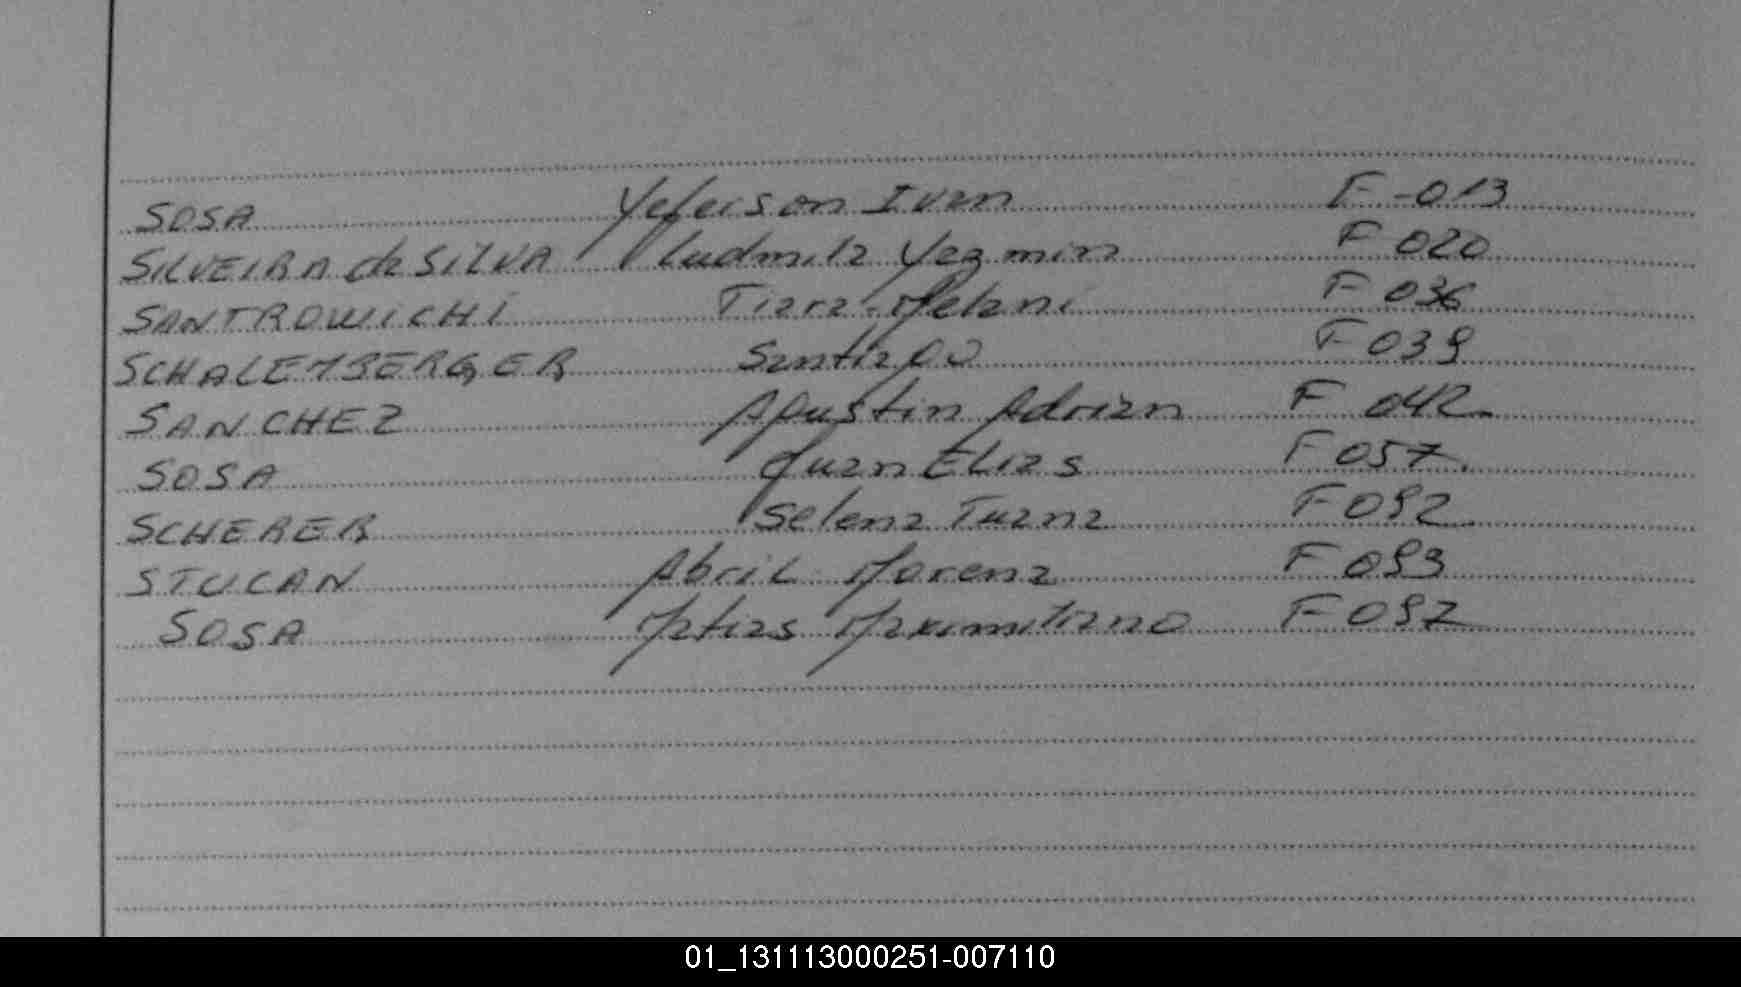 SOSA Yeferson Ivan F-013
SILVEIRA da SILVA Ludmila Yazmin F 020
SANTROWICHI Tiara Melani F 036
SCHALEMBERGER Santiago F 039
SANCHEZ Agustin Adrian F 042
SOSA Juan Elias F 057
SCHERER Selena Tuana F 092
STUCAN Abril Morena F 093
SOSA Matias Maximiliano F 097
01_131113000251-007110